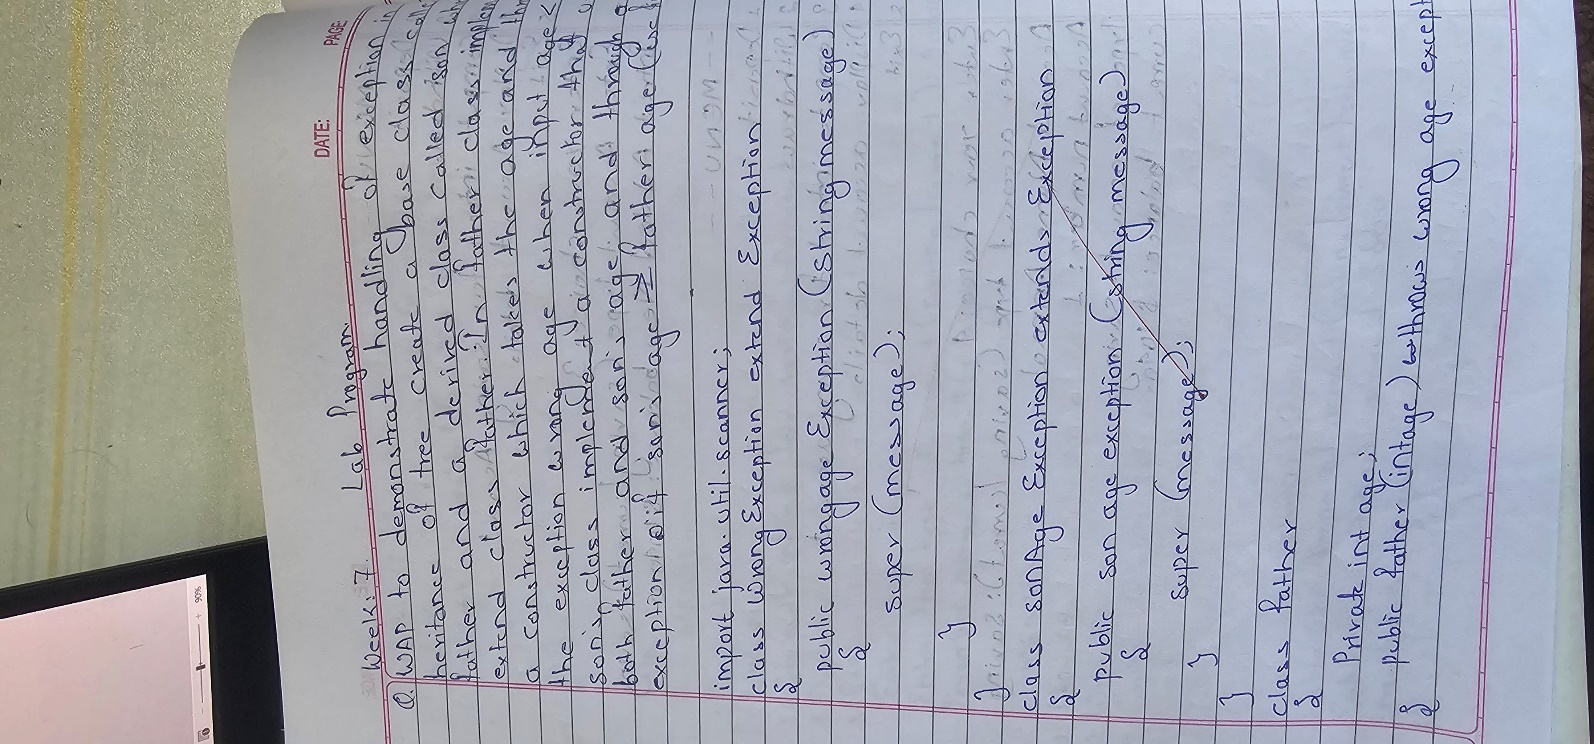 DATE:
PAGE:
Week: 7 Lab Program
Q. WAP to demonstrate handling of exception in
heritance of tree create a base class
father and a derived class called son
extend class father. In father class
a constructor which takes the age and
the exception wrong age when input age <
son class implement a constructor that
both father and son's age and through
exception if son's age ≥ father age
import java.util.scanner;
class WrongException extend Exception
{
public wrongage Exception (String message)
{
super (message);
}
}
class sonAge Exception extends Exception
{
public son age exception (string message)
{
super (message);
}
}
class father
{
Private int age;
public father (int age) throws wrong age except
{
90%